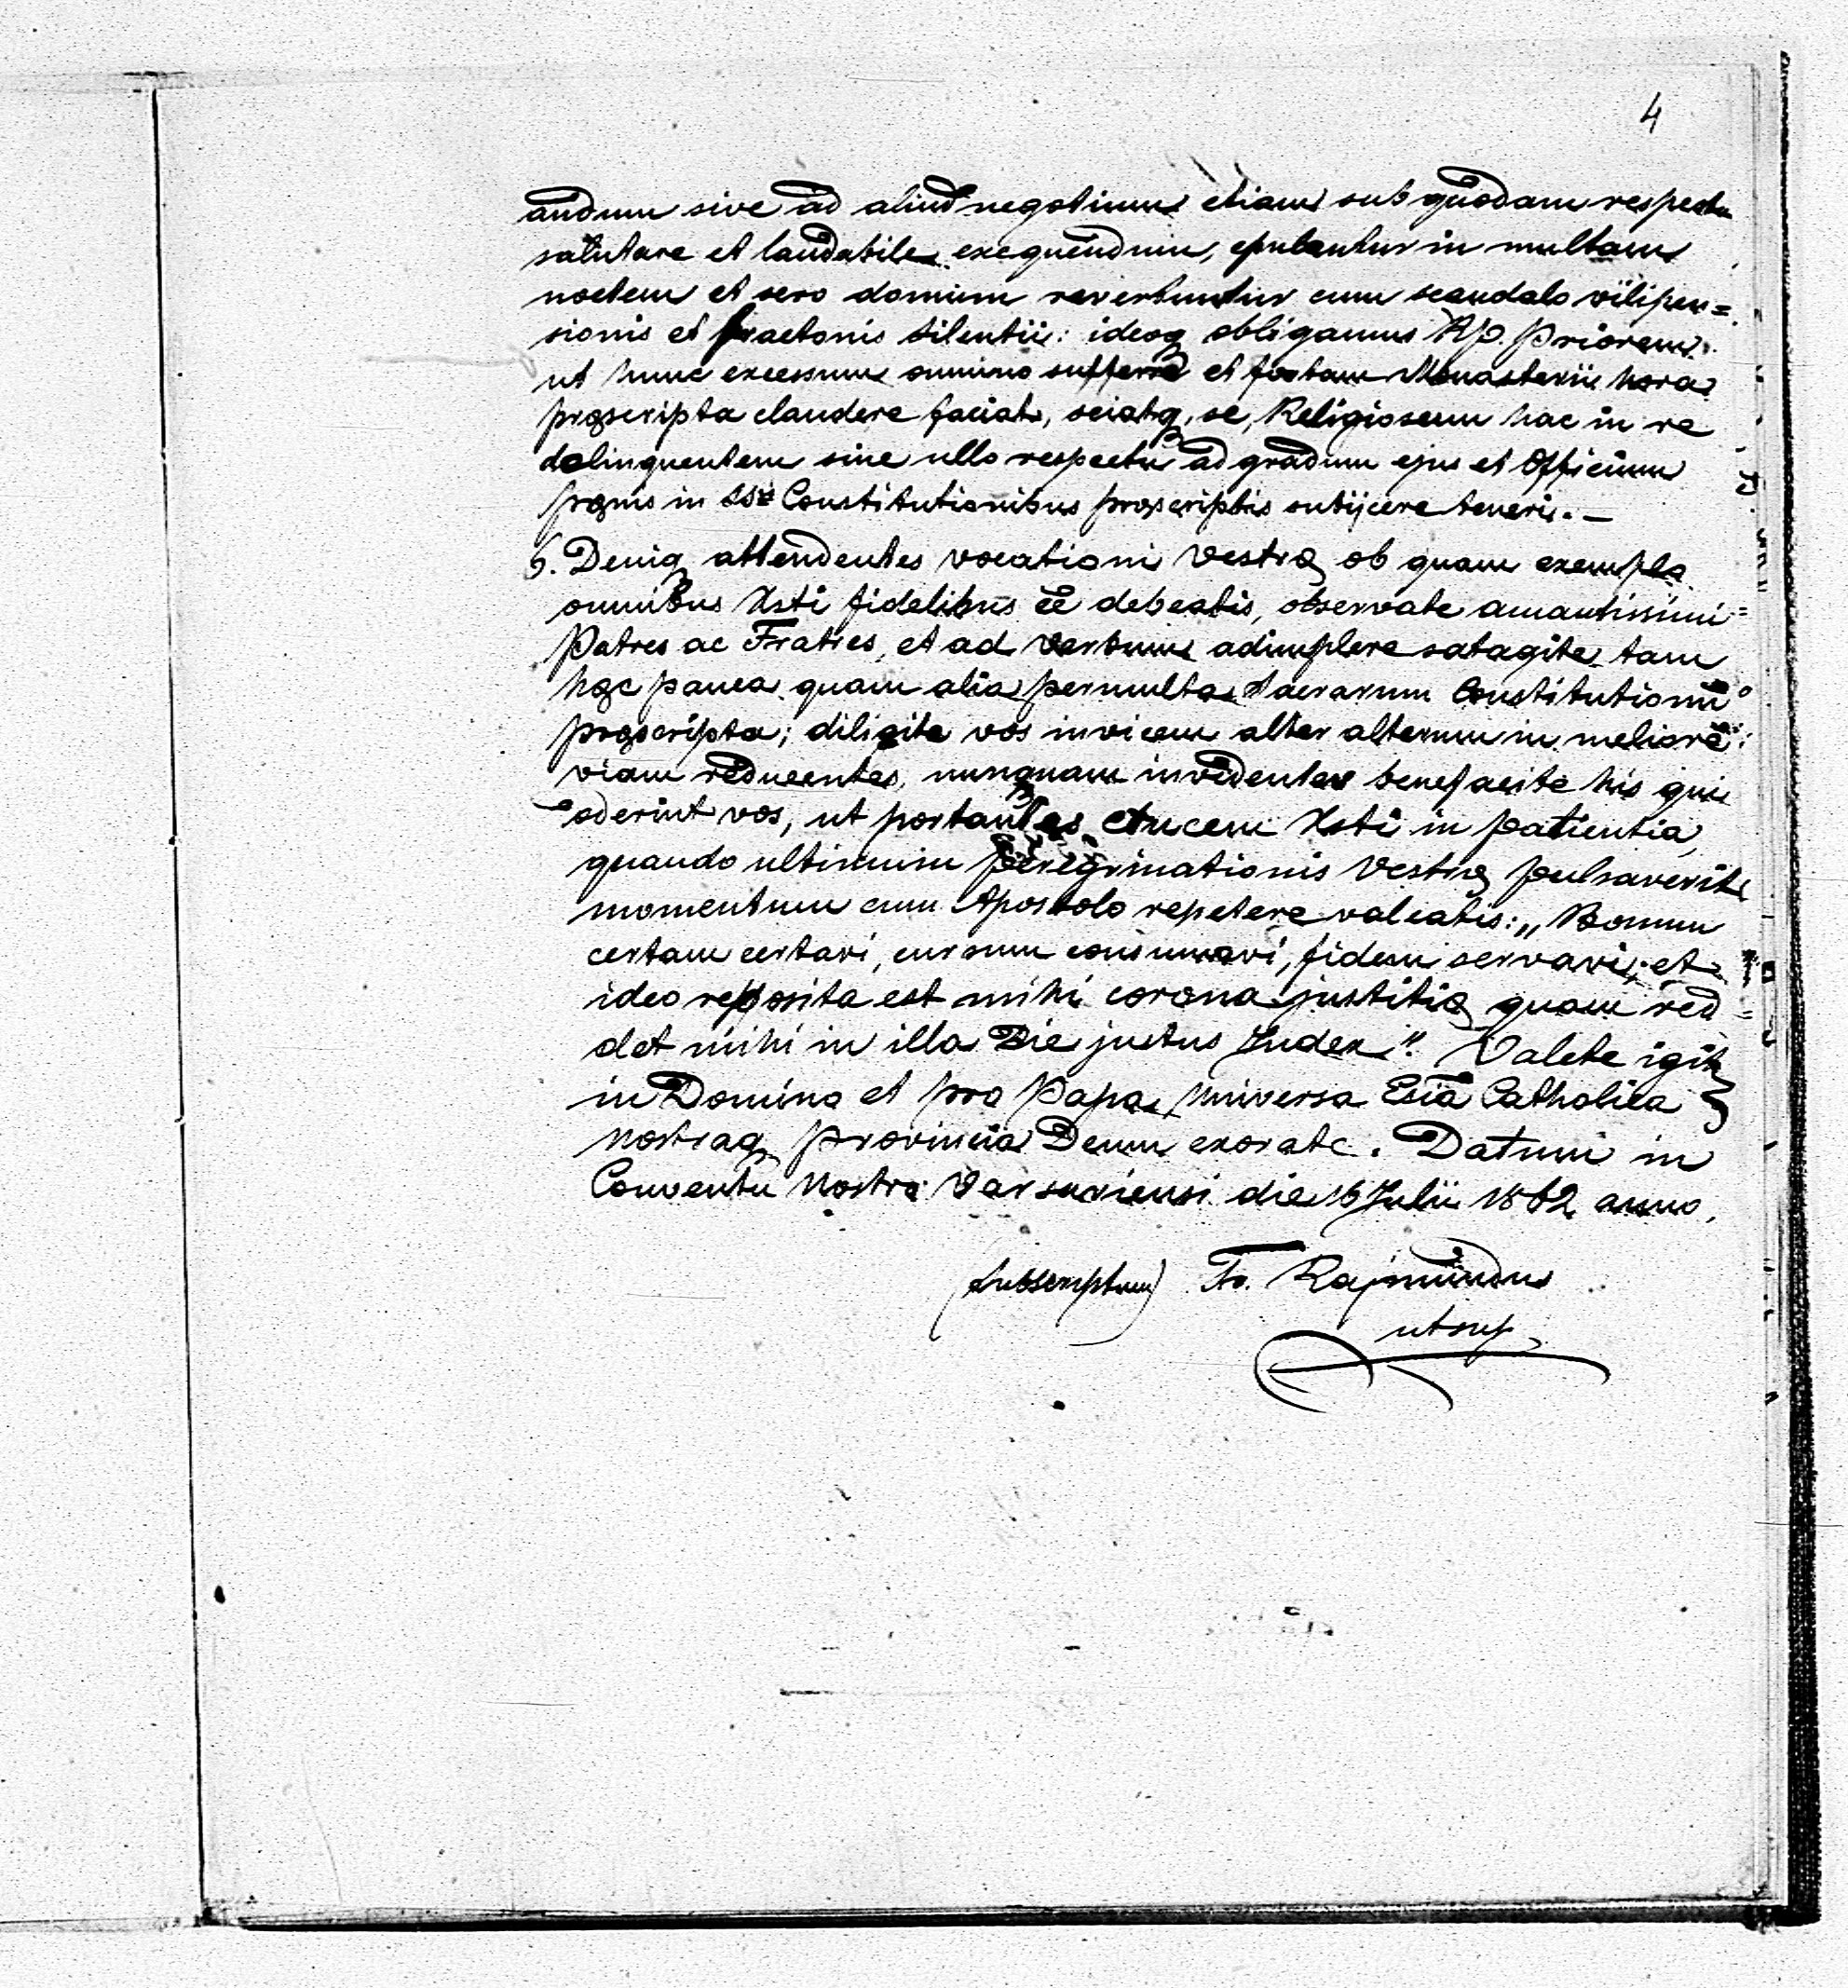 4
andum sive ad aliud negotium etiam sub quodam respectu
salutare et laudabile exequendum, epulantur in multam
noctem et sero domum revertuntur cum scandalo vilipen=
sionis et fractionis silentii: ideoq obligamus RP. Priorem
ut hunc excessum omnino sufferre et portam Monasterii hora
pręscripta claudere faciat, sciatq, se, Religiosum hac in re
delinquentem sine ullo respectu ad gradum ejus et Officium
pęnis in SS. Constitutionibus pręscriptis subijcere teneri. —
6. Deniq attendentes vocationi Vestrę ob quam exempla
omnibus Xsti fidelibus eē debeatis, observate amantissimi
Patres ac Fratres, et ad verbum adimplere satagite tam
hęc pauca quam alia permulta Sacrarum Constitutionū
pręscripta; diligite vos invicem alter alterum in meliorē
viam reducentes, nunquam invidentes benefacite his qui
oderint vos, ut portantes Crucem Xsti in patientia,
quando ultimum peregrinationis Vestrę pulsaverit
momentum cum Apostolo repetere valeatis: „Bonum
certam certavi, cursum consumavi, fidem servavi, et
ideo reposita est mihi corona justitię quam red=
det mihi in illa Die justus Judex". Valete igit
in Domino et pro Papa, Universa Eccia Catholica
nostraq Provincia Deum exorate. Datum in
Conventu Nostro Varsaviensi die 16 Julii 1862 anno.
(subscriptum) Fr. Rajmundus
utsup